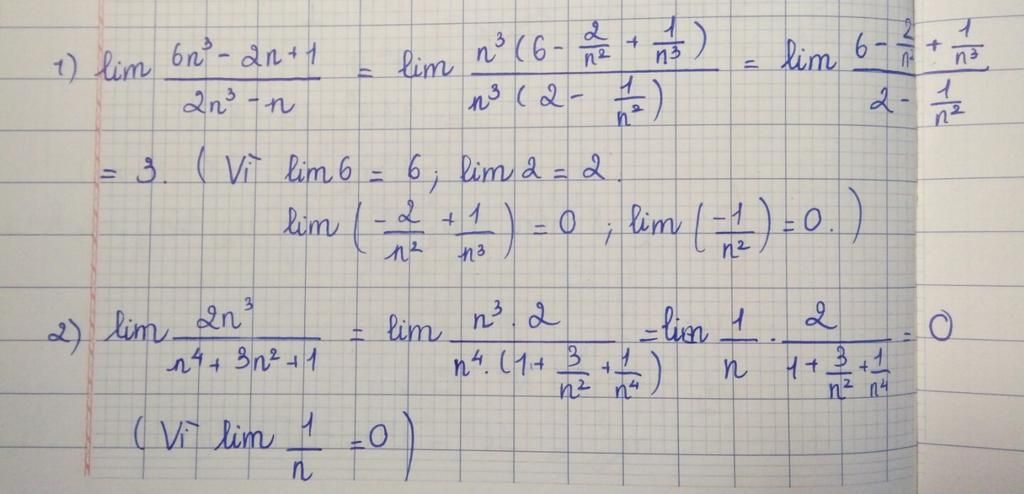 1) lim (6n³ - 2n + 1)/(2n³ - n) = lim (n³(6 - 2/n² + 1/n³))/(n³(2 - 1/n²)) = lim (6 - 2/n² + 1/n³)/(2 - 1/n²)
= 3. (Vì lim 6 = 6; lim 2 = 2.
lim (-2/n² + 1/n³) = 0; lim (-1/n²) = 0.)
2) lim 2n³/(n⁴ + 3n² + 1) = lim (n³ . 2)/(n⁴.(1 + 3/n² + 1/n⁴)) = lim 1/n . 2/(1 + 3/n² + 1/n⁴) = 0
(Vì lim 1/n = 0)